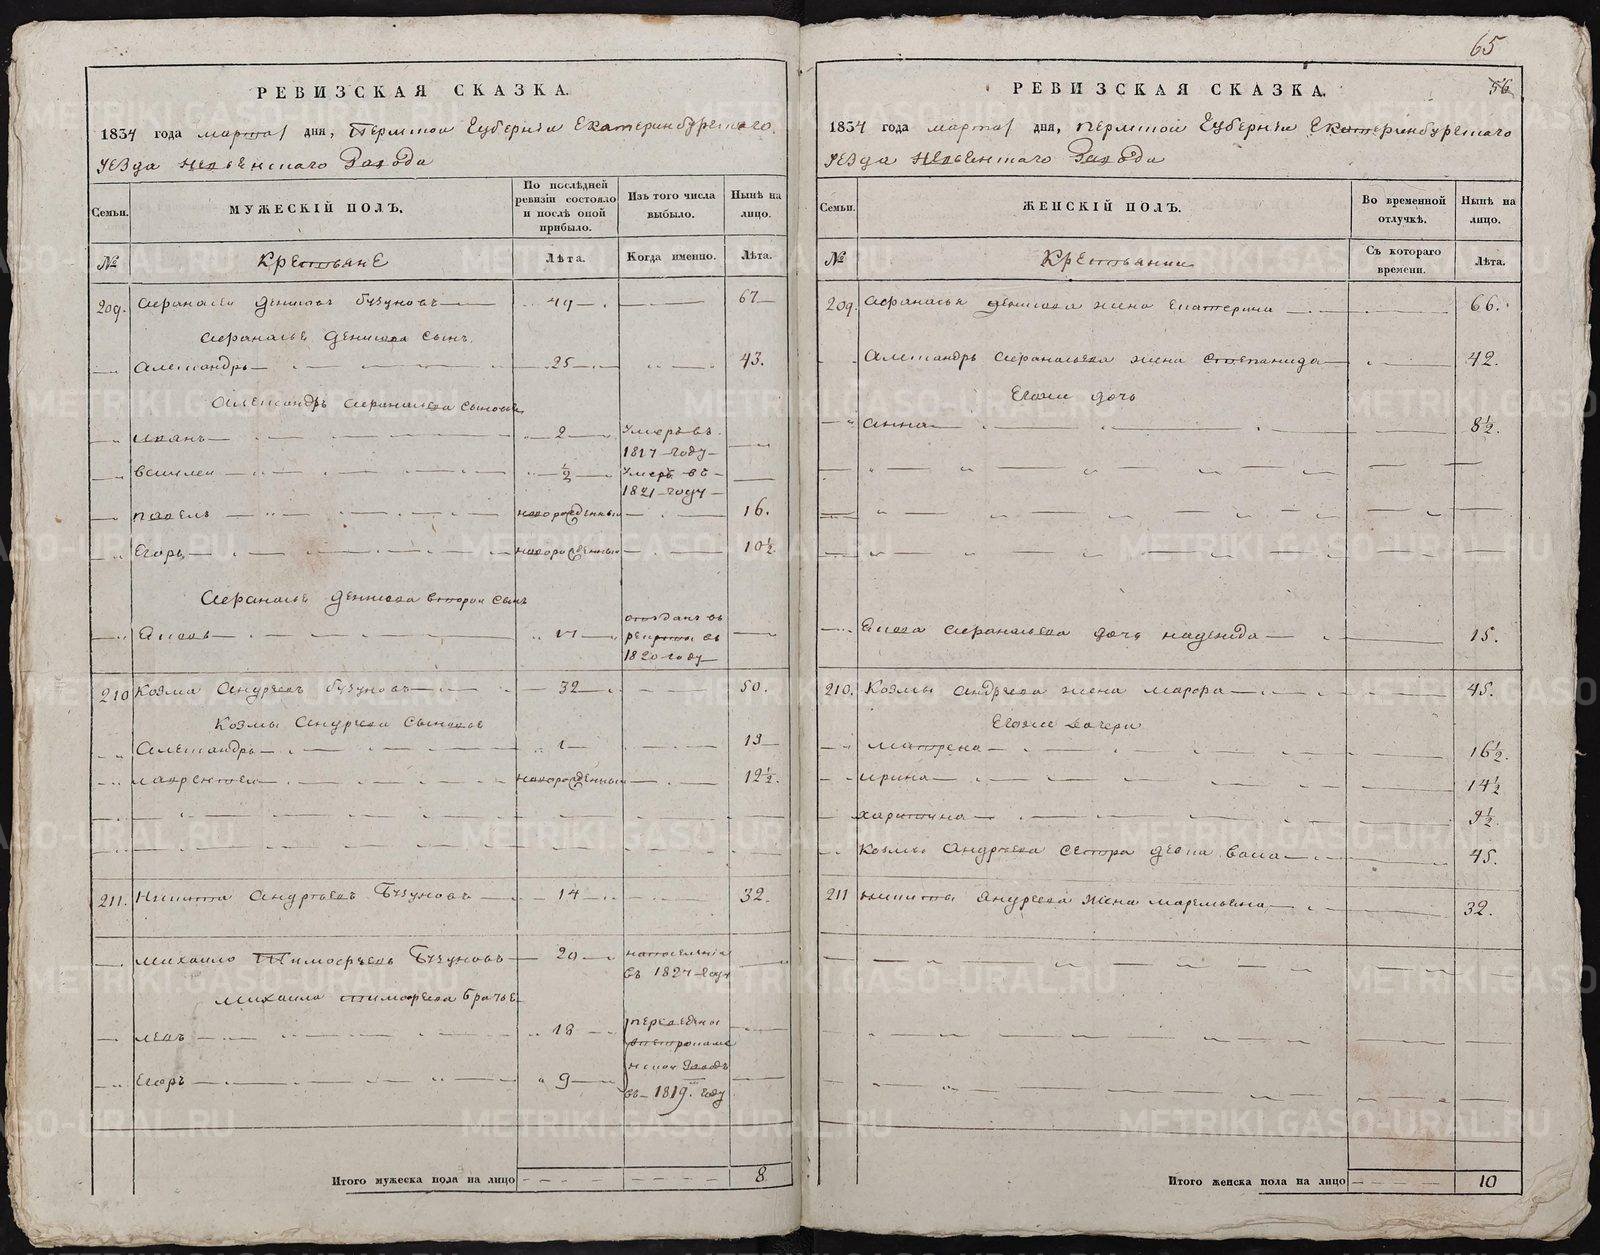 65
РЕВИЗСКАЯ СКАЗКА.
1834 года марта 1 дня, Пермской Губерніи Екатеринбургскаго
уезда Невьянскаго Завода
Семьи.
МУЖЕСКІЙ ПОЛЪ.
По послѣдней ревизіи состояло и послѣ оной прибыло.
Изъ того числа выбыло.
Нынѣ на лицо.
№
Крестьяне
Лѣта.
Когда именно.
Лѣта.
209. Афанасеи Денисовъ Бузуновъ 49 67
Афанасье Денисова сынъ
Александръ 25 43.
Александръ Афанасьева сыновье
Иванъ 2 умеръ въ 1817 году
Василеи ½ умеръ въ 1821 году
Павелъ новорожденныи 16.
Егоръ новорожденныи 10½
Афанасье Денисова второи сынъ
Яковъ отданъ в рекруты въ 1820 году
210 Козма Андреевъ Бузуновъ 32 50.
Козмы Андреева сыновье
Александръ 1 13
Лаврентеи новорожденныи 12½.
211. Никита Андреевъ Бузуновъ 14 32.
Михаило Тимофеевъ Бузуновъ 20 на поселенiе въ 1827 году
Михаила Тимофеева братье
Левъ 18 переведены
Егоръ 9 заводъ въ 1819 году
Итого мужеска пола на лицо 8
РЕВИЗСКАЯ СКАЗКА.
56
1834 года марта 1 дня, Пермской Губерніи Екатеринбургскаго
уезда Невьянскаго Завода
Семьи.
ЖЕНСКІЙ ПОЛЪ.
Во временной отлучкѣ.
Нынѣ на лицо.
№
Крестьянки
Съ котораго времени.
Лѣта.
209. Афанасья Денисова жена Екатерина 66.
Александръ Афанасьева жена Степанида 42.
Егоже дочь
Анна 8½.
Якова Афанасьева дочь Надежда 15.
210. Козмы Андреева жена Марфа 45.
Егоже дочери
Матрена 16½.
Ирина 14½
Харитина 9½.
Козмы Андреева сестра девка 45.
211 Никиты Андреева жена Маремьяна 32.
Итого женска пола на лицо 10
METRIKI.GASO-URAL.RU